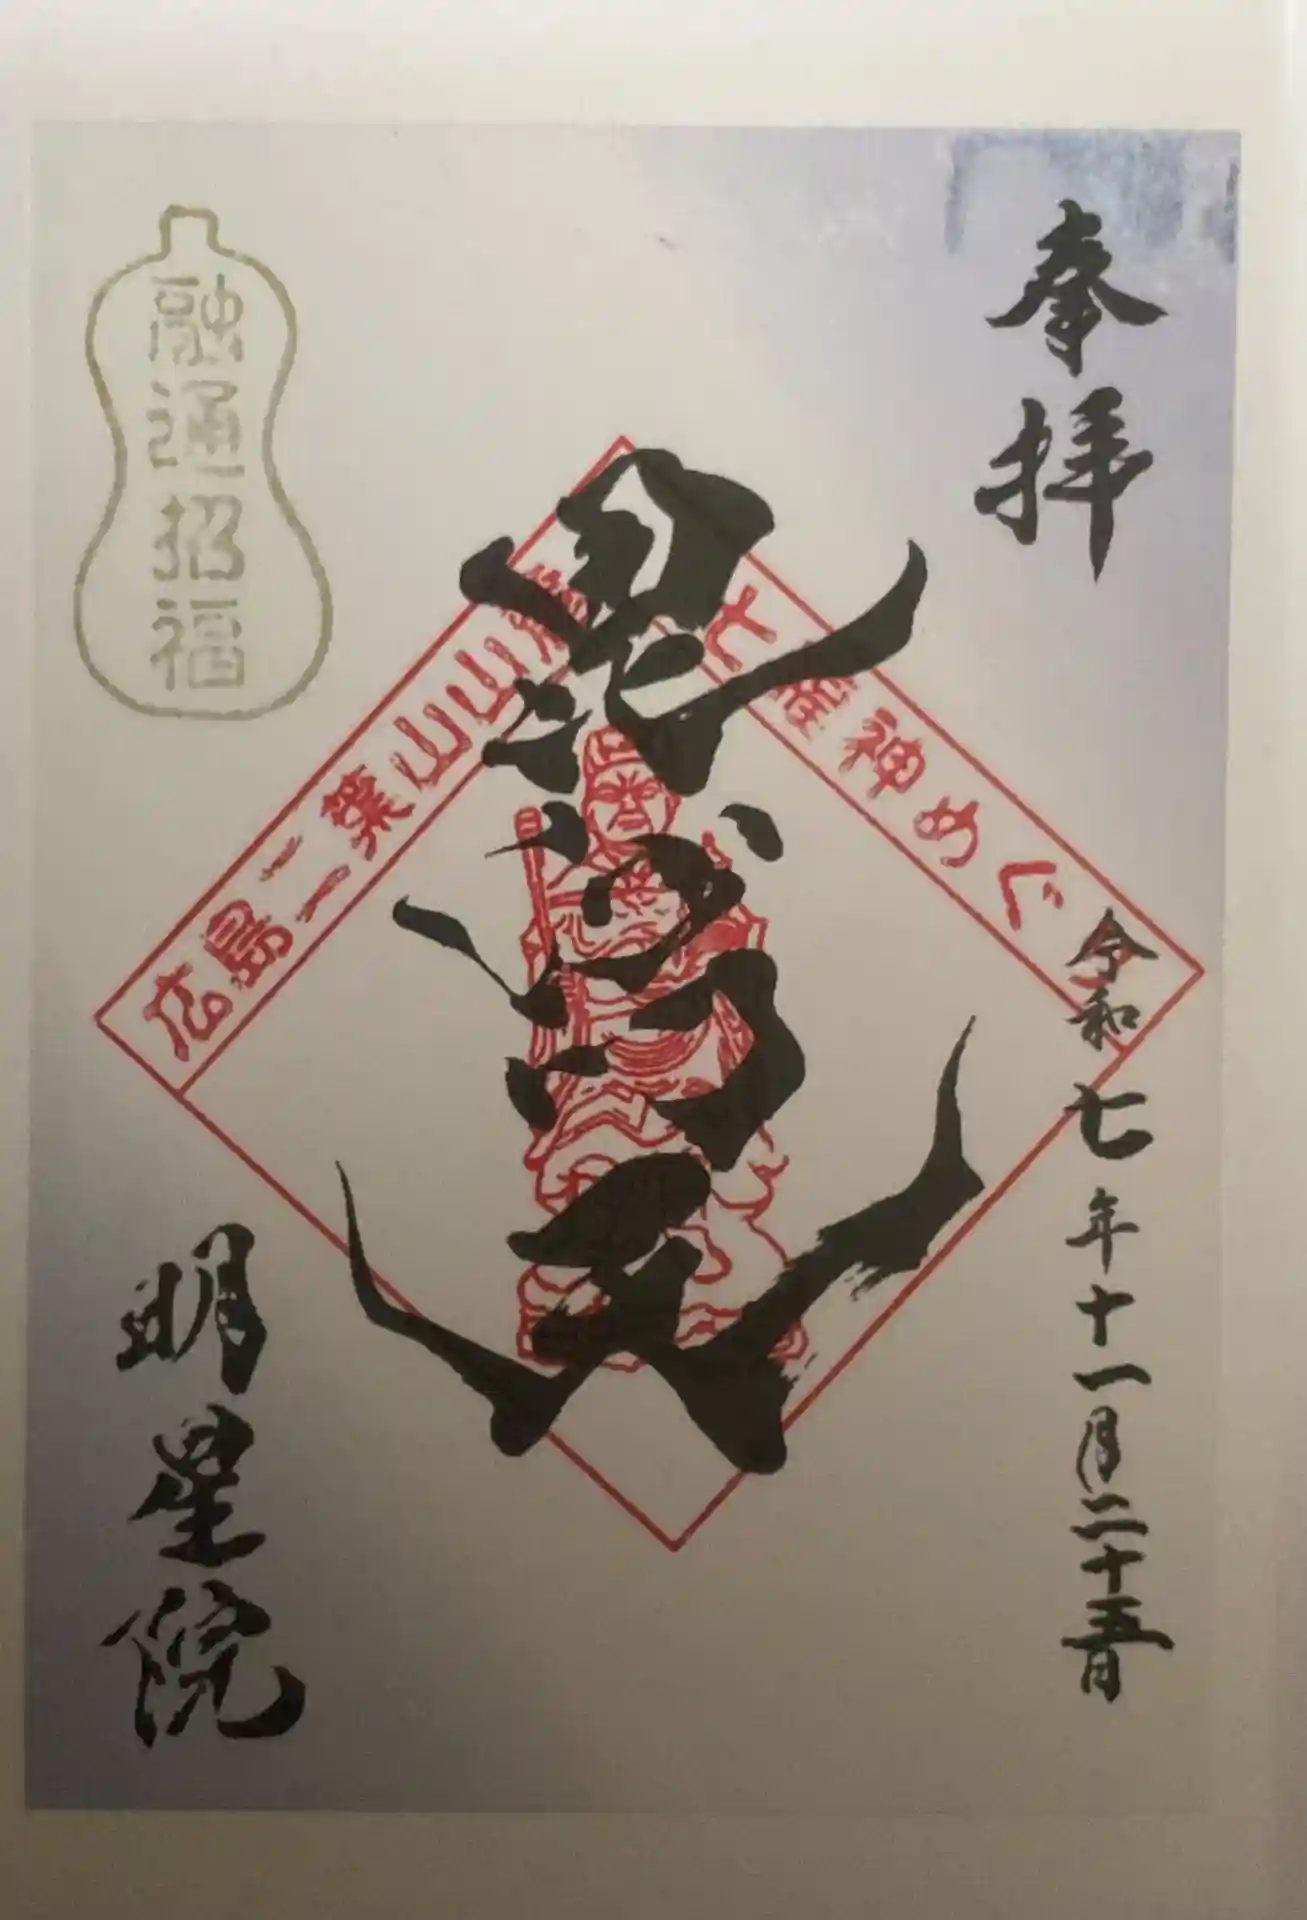 奉拝
令和七年十一月二十五日
毘沙門天
広島二葉山山麓
七福神めぐり
融通招福
明星院